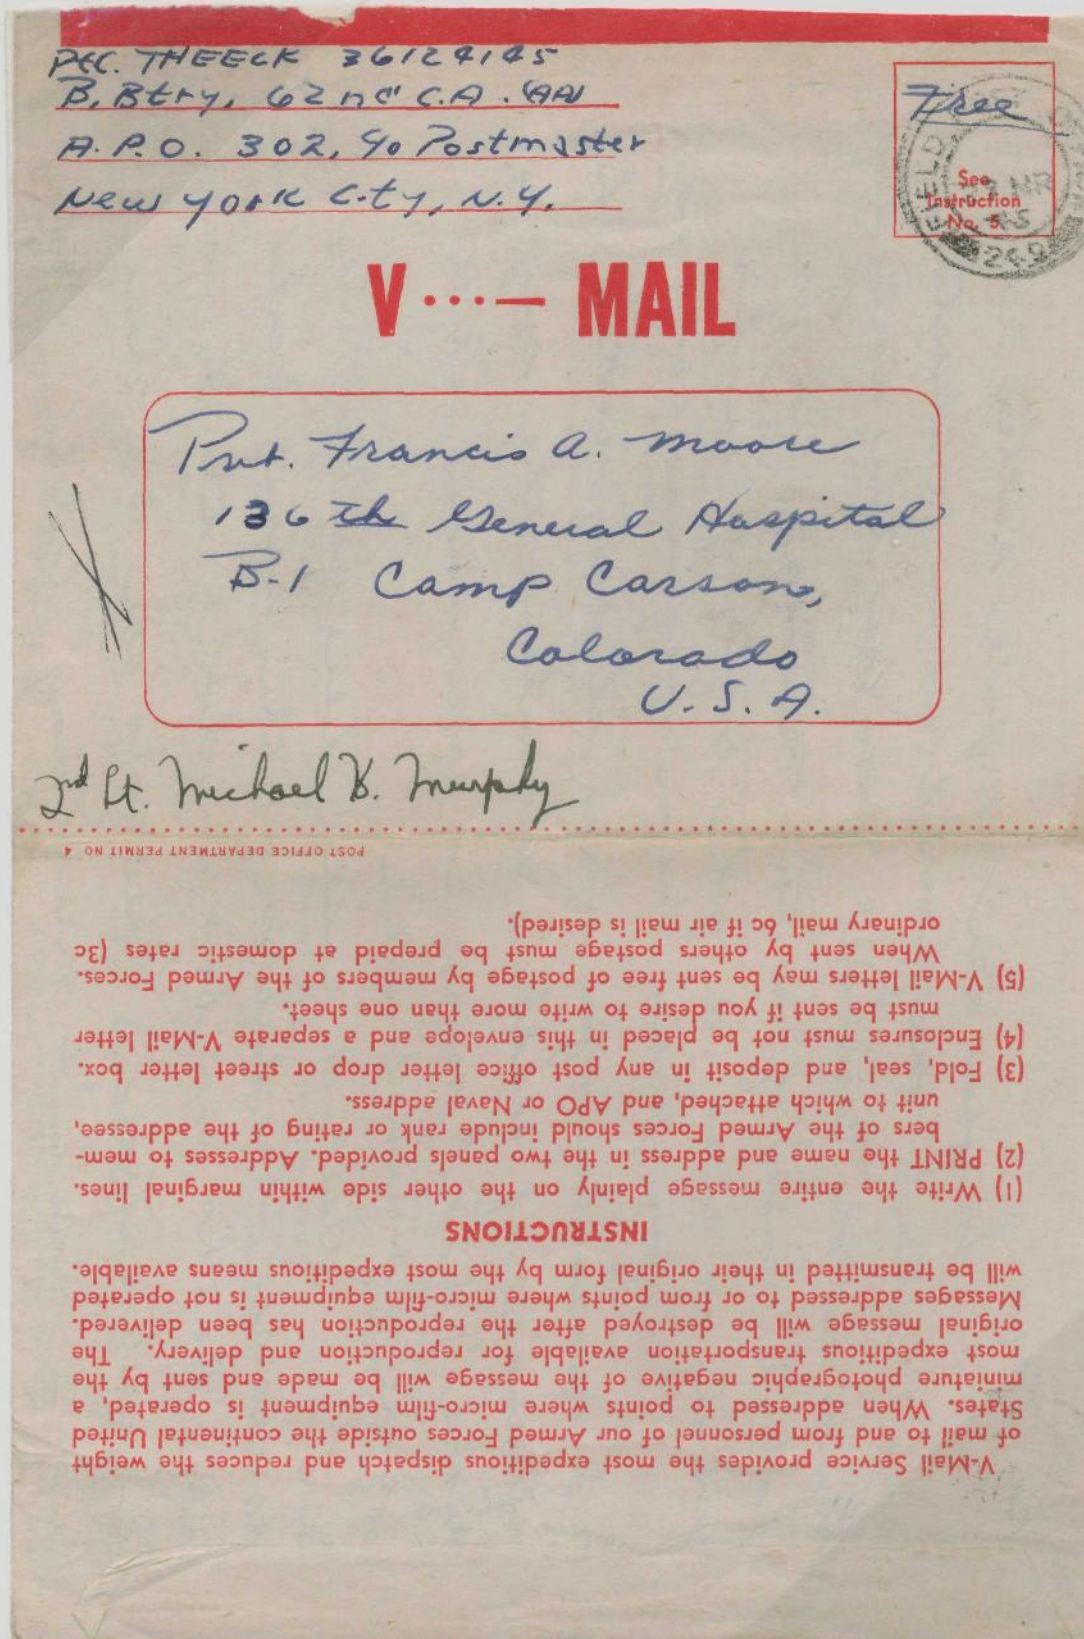 Pfc. THEECK 36124145
B. Btry. 62nd C.A. (AA)
A.P.O. 302, c/o Postmaster
New York City, N.Y.
Free
See
Instruction
No. 5
FIELD
249
V ···— MAIL
Pvt. Francis A. Moore
136th General Hospital
B-1 Camp Carson,
Colorado
U.S.A.
2nd Lt. Michael K. Murphy
POST OFFICE DEPARTMENT PERMIT NO 4
V-Mail Service provides the most expeditious dispatch and reduces the weight
of mail to and from personnel of our Armed Forces outside the continental United
States. When addressed to points where micro-film equipment is operated, a
miniature photographic negative of the message will be made and sent by the
most expeditious transportation available for reproduction and delivery. The
original message will be destroyed after the reproduction has been delivered.
Messages addressed to or from points where micro-film equipment is not operated
will be transmitted in their original form by the most expeditious means available.
INSTRUCTIONS
(1) Write the entire message plainly on the other side within marginal lines.
(2) PRINT the name and address in the two panels provided. Addresses to mem-
bers of the Armed Forces should include rank or rating of the addressee,
unit to which attached, and APO or Naval address.
(3) Fold, seal, and deposit in any post office letter drop or street letter box.
(4) Enclosures must not be placed in this envelope and a separate V-Mail letter
must be sent if you desire to write more than one sheet.
(5) V-Mail letters may be sent free of postage by members of the Armed Forces.
When sent by others postage must be prepaid at domestic rates (3c
ordinary mail, 6c if air mail is desired).